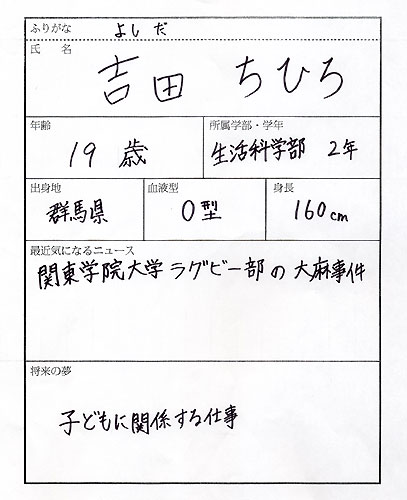 ふりがな よしだ
氏名
吉田 ちひろ
年齢 所属学部・学年
19歳 生活科学部 2年
出身地 血液型 身長
群馬県 O型 160cm
最近気になるニュース
関東学院大学ラグビー部の大麻事件
将来の夢
子どもに関係する仕事